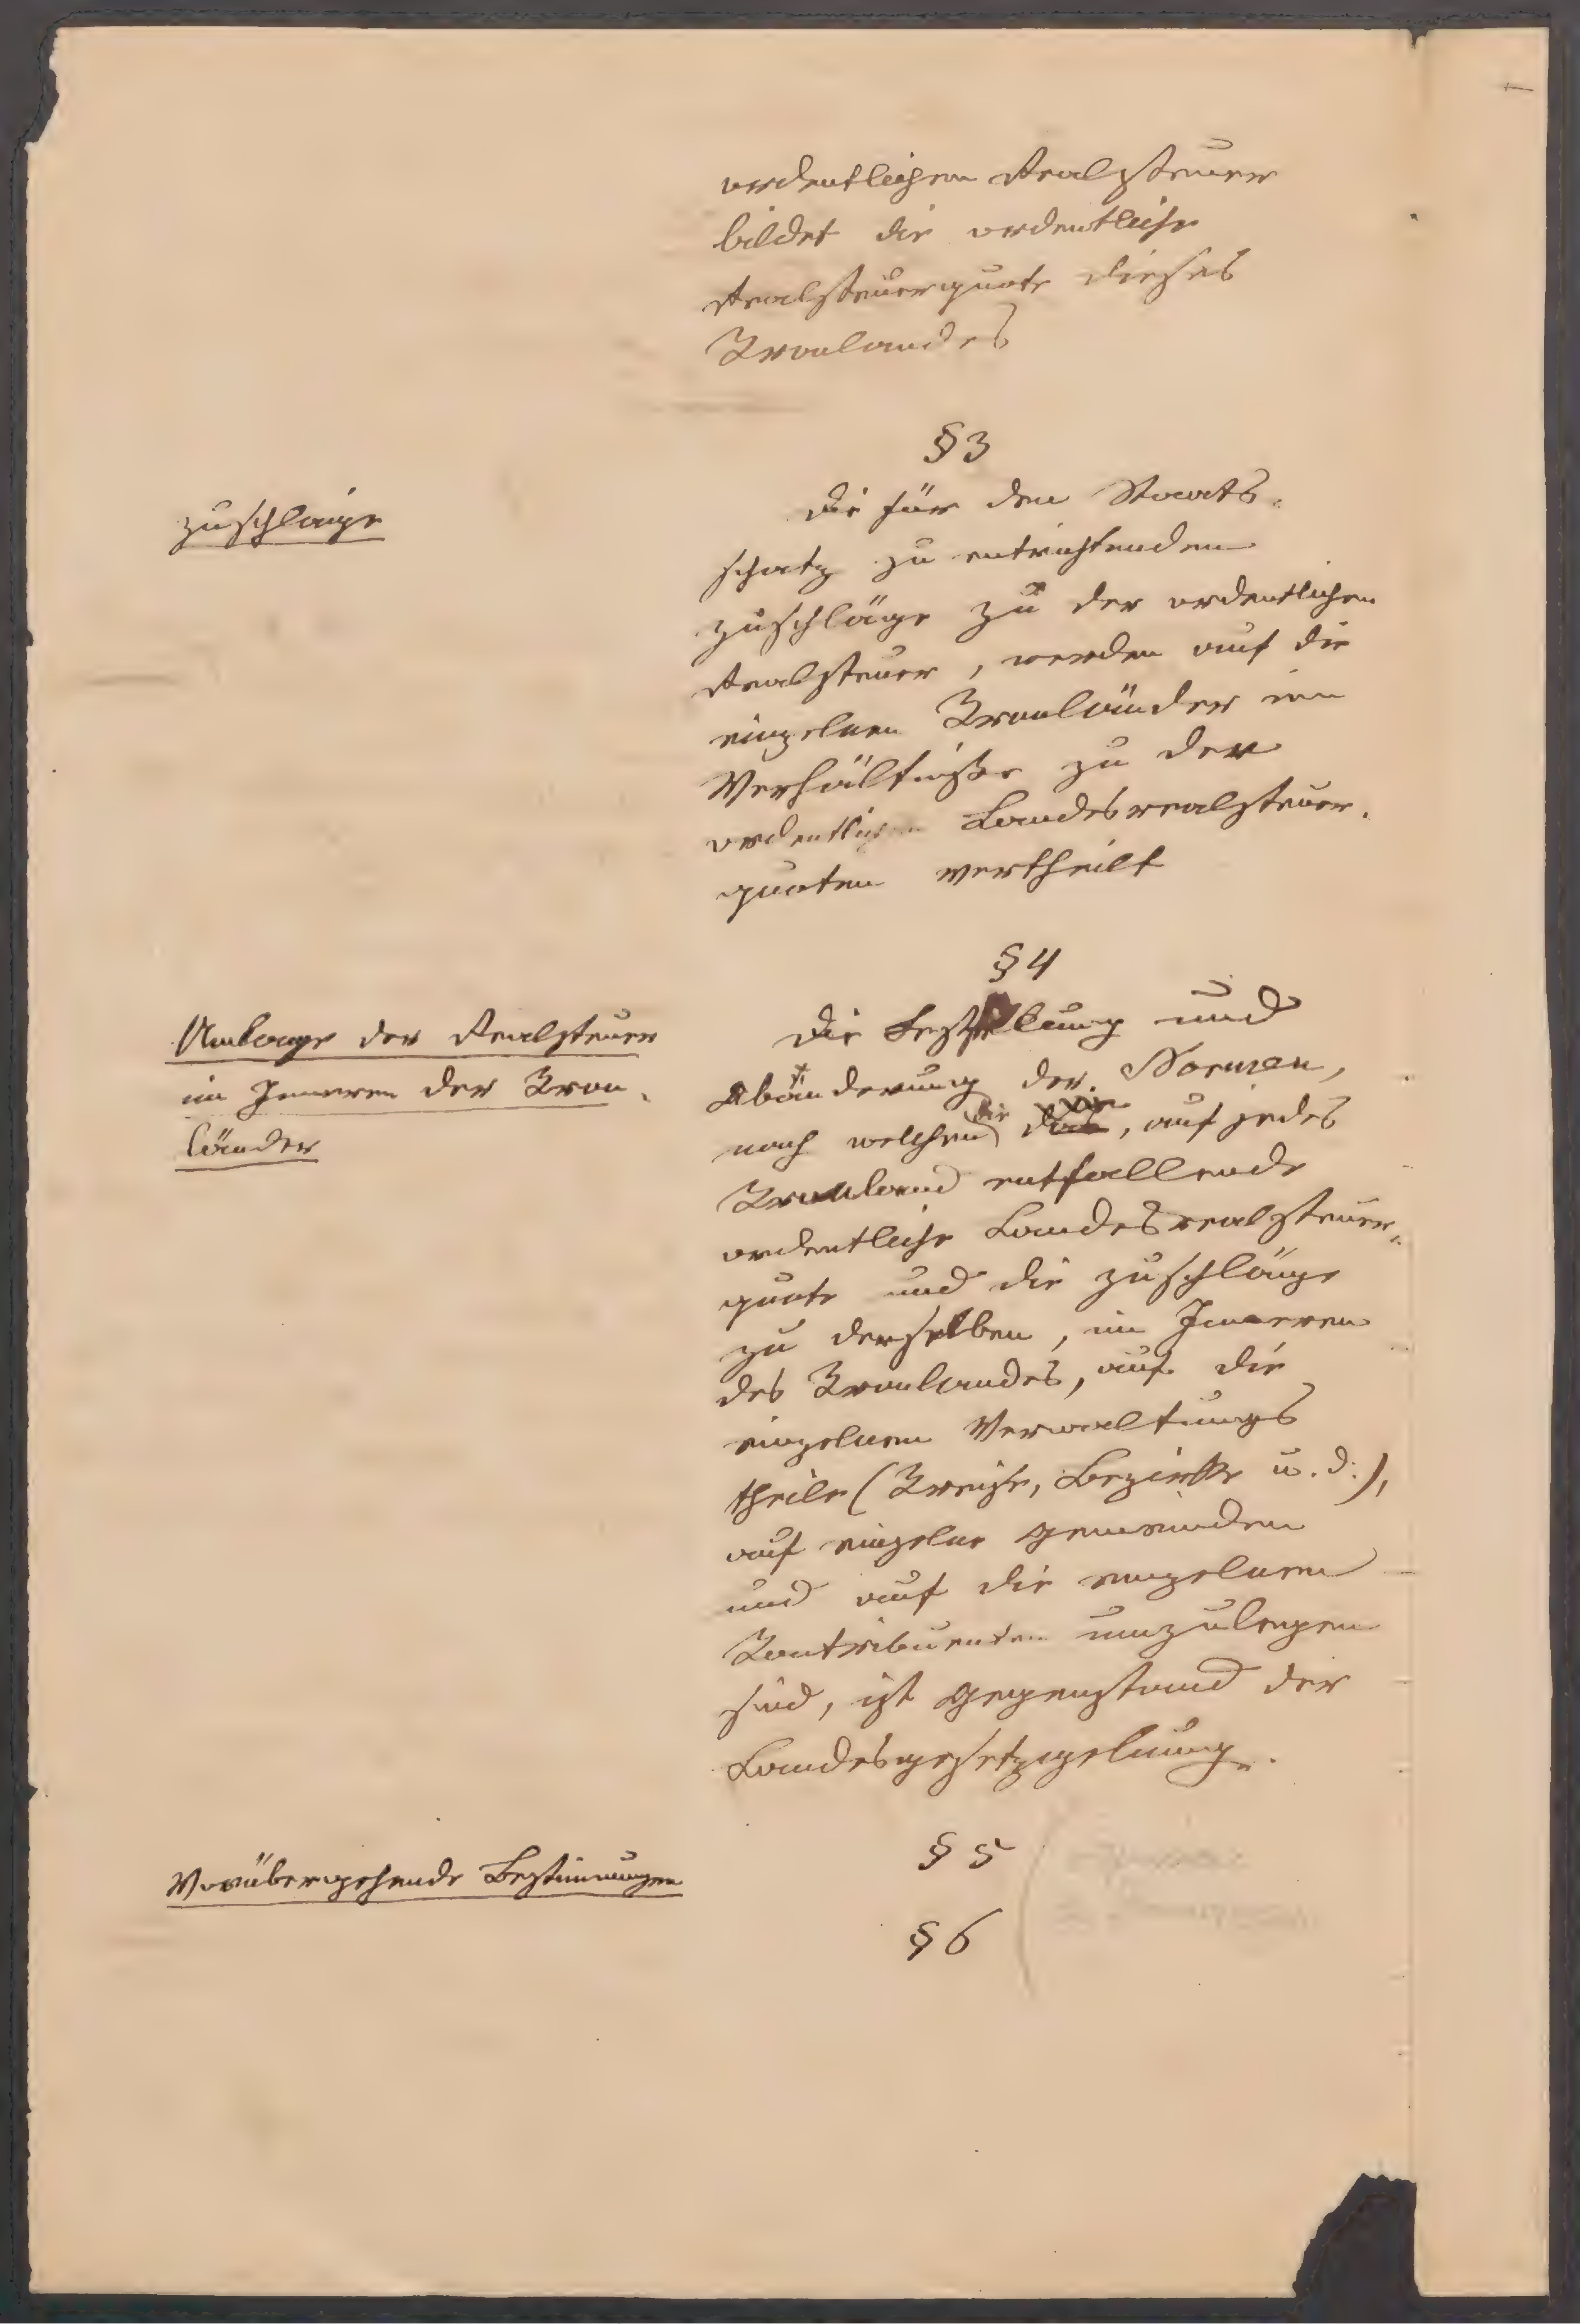 ordentlichen Realsteuer
bildet die ordentliche
Realsteuerquote dieses
Kronlandes
§ 3
Zuschläge
Die für den Staats-
schatz zu entrichtenden
Zuschläge zu der ordentlichen
Realsteuer, werden auf die
einzelnen Kronländer im
Verhältnisse zu der
ordentlichen Landesrealsteuer-
quoten vertheilt
§ 4
Umlage der Realsteuer
im Inneren der Kron-
länder
Die Feststellung und
Abänderung der Normen,
nach welchen die, auf jedes
Kronland entfallende
ordentliche Landesrealsteuer-
quote und die Zuschläge
zu derselben, im Inneren
des Kronlandes, auf die
einzelnen Verwaltungs
theile (Kreise, Bezirke u. d.),
auf einzelne Gemeinden
und auf die einzelnen
Kontribuenten umzulegen
sind, ist Gegenstand der
Landesgesetzgebung.
§ 5
Vorübergehende Bestimmungen
§ 6